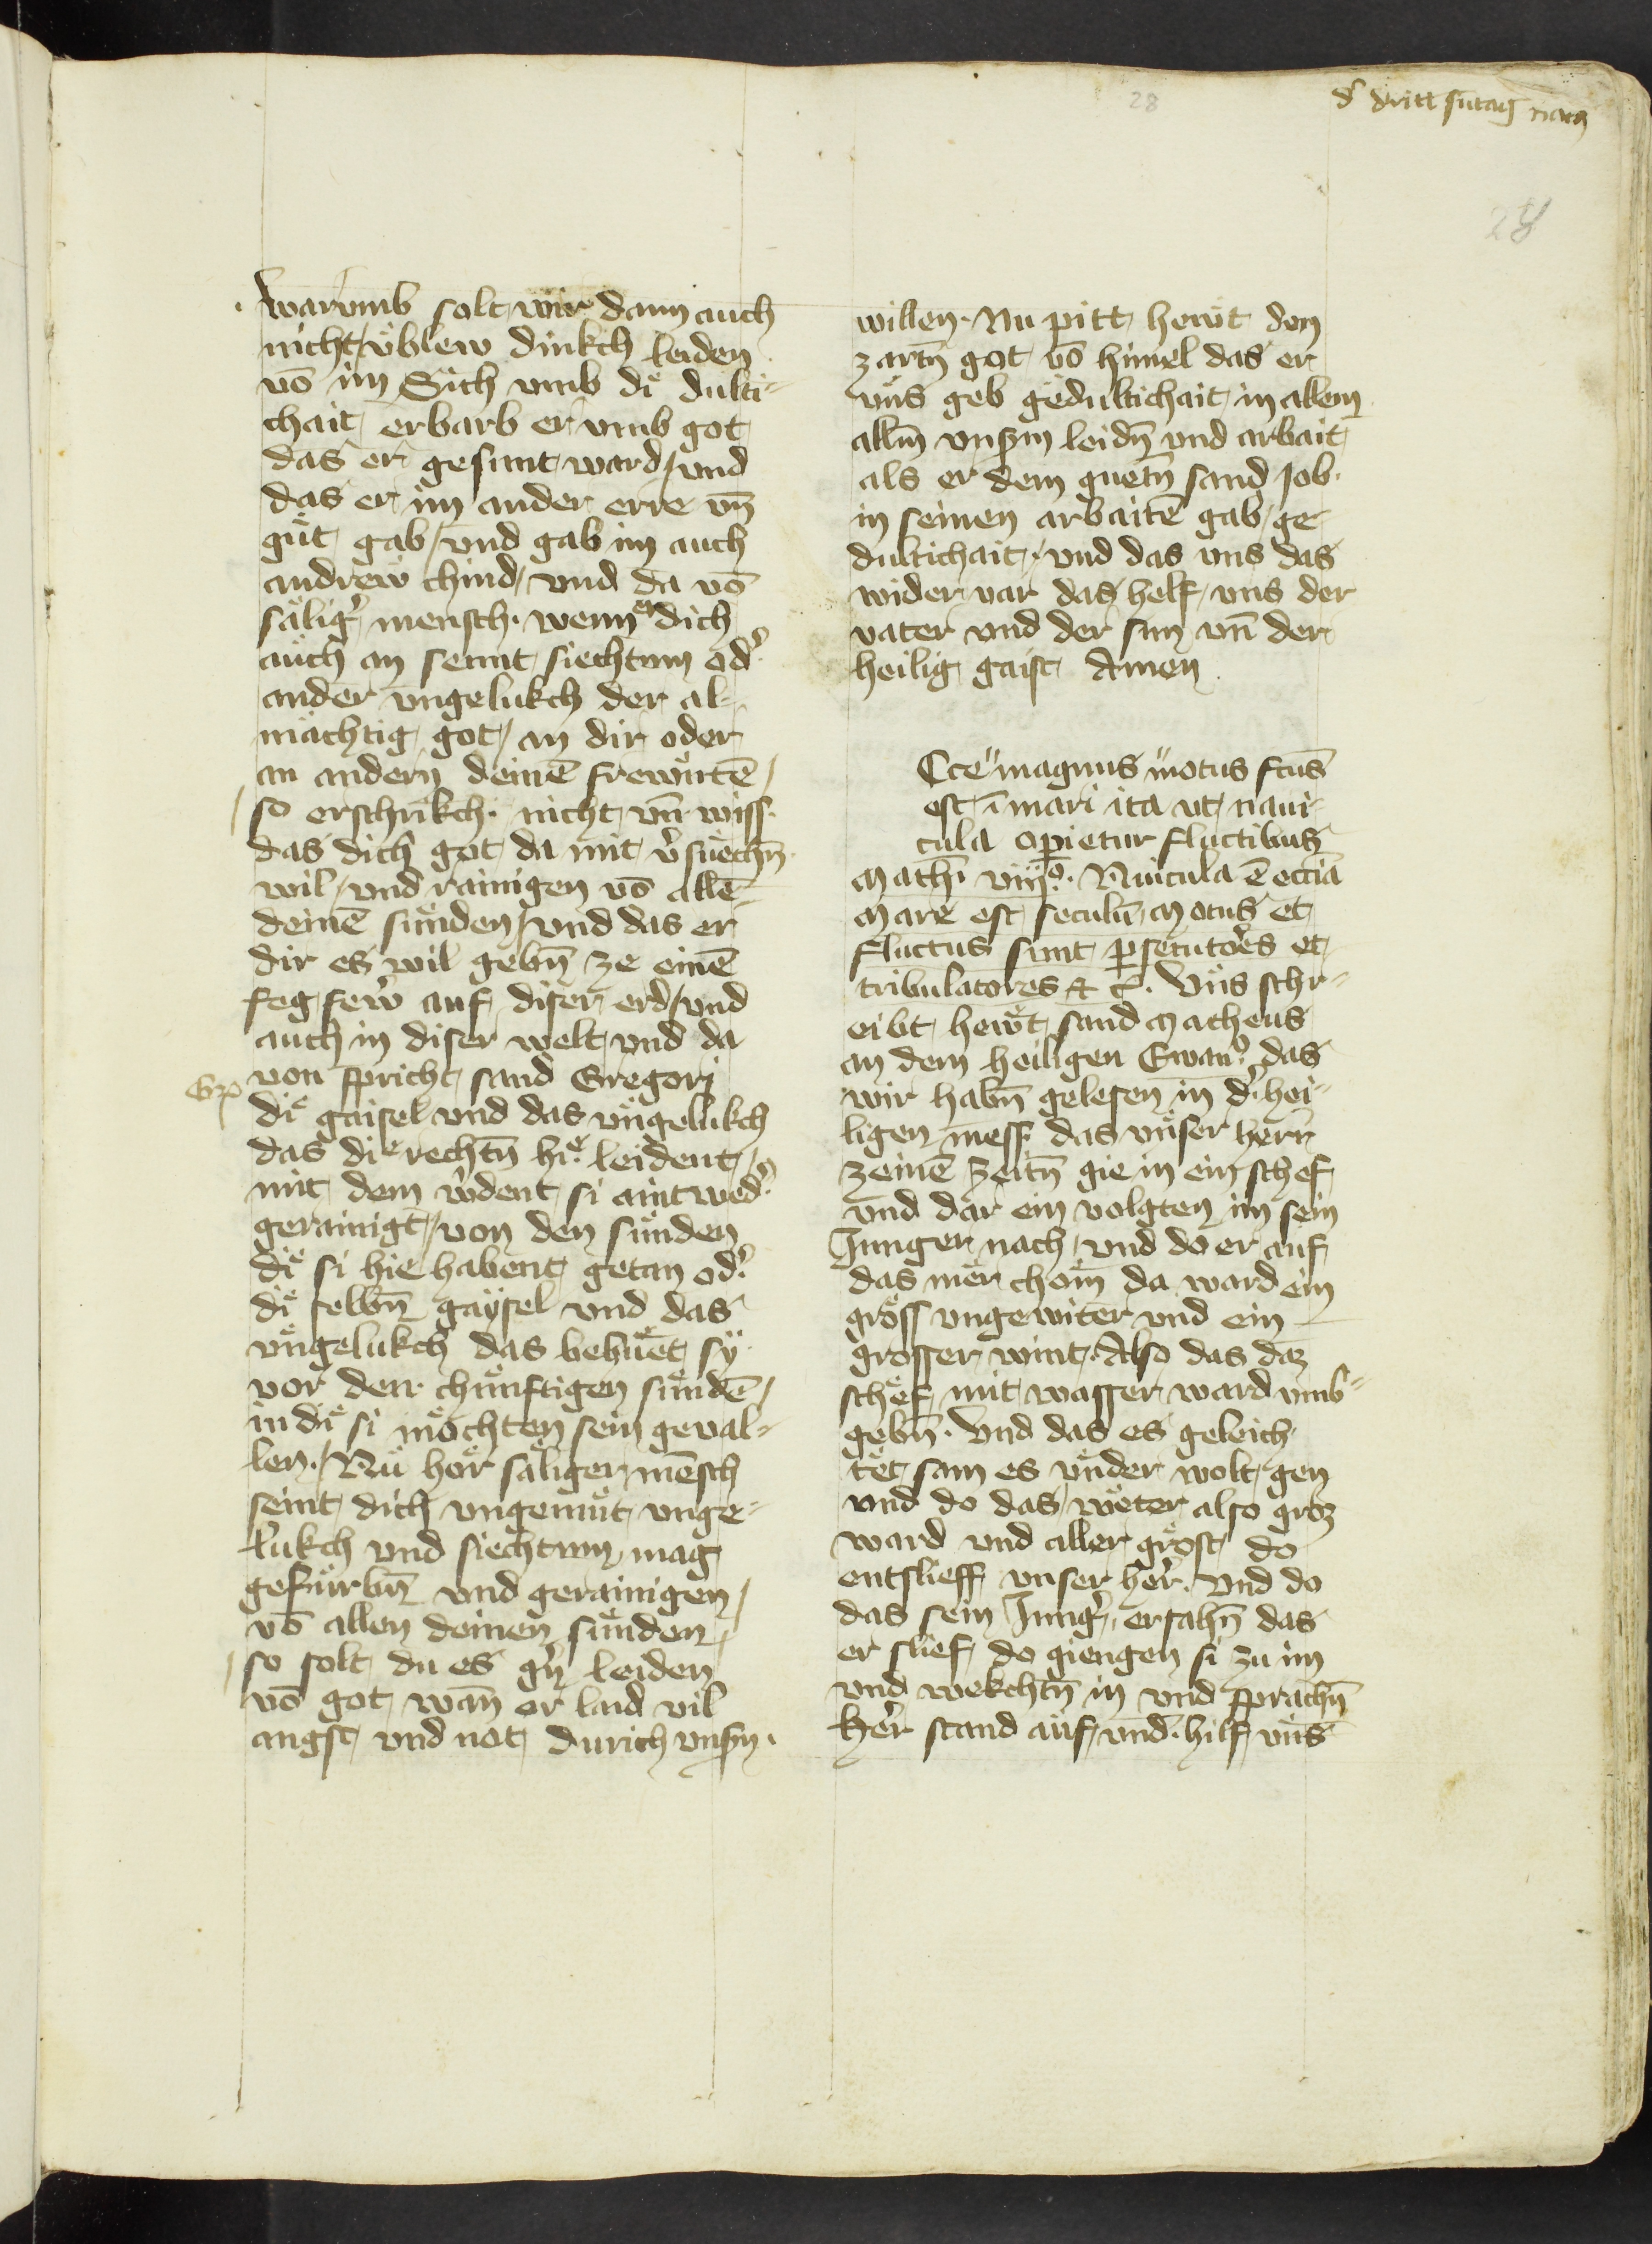 28
d' dritt sūtag nach
28
warvmb solt wir dann auch
nicht vͤblew dinkch leiden
vō im Sich vmb diͤ dulti-
chait erbarb er vmb got
das er gesunt ward / vnd
das er im ander erre vn̄
guͤt gab / vnd gab im auch
andrew chind / vnd da vō
saͤlig' mensch · wenn dich
auch an sennt siechtum od'
ander vngelukch der al-
maͤchtig got / an dir oder
an andern deinē frewntē /
so erschrikch · nicht vn̄ wiss
das dich got da mit v'suechn̄
wil / vnd rainigen vō allē
deinē sunden / vnd das er
dir es wil gebn̄ ze einē
fegfewr auf diser erd / vnd
auch in diser welt vnd da
von spricht sand Gregorj
Gͦ
diͤ gaisel vnd das vngelukch
das diͤ rechtn̄ hiͤ leident /
mit dem w'dent si aintwed'
gerainigt / von den sunden
diͤ si hie habent getan od'
diͤ selbn̄ gaysel vnd das
vngelukch das behuͤet sy
vor den chunftigen sundē /
in diͤ si moͤchten sein geual-
len · / Nu hoͤr saͤliger mēsch
seint dich vngemuͤt vnge-
lukch vnd siechtum mag
gefuͤrbn̄ vnd gerainigen /
vō allen deinen sunden /
so solt du es g'n leiden
vō got wan̄ er laid vil
angst vnd not durich vnsn̄
willen · Nu pitt hewt den
zartn̄ got vō himel das er
vns geb gedultichait in allem
allm̄ vnsm̄ leidn̄ vnd arbait
als er dem guetn̄ sand Job
in seinen arbaitē gab ge-
dultichait / vnd das vns das
wider var das helf vns der
vater vnd der sun vn̄ der
heilig gaist Amen
Cce magnus motus fcūs
est ī mari ita vt naui-
cula opietur fluctibus
Math' viijͦ · Nauicula ē eccīa
Mare est seculū Motus et
fluctus sunt psecutores et
tribulatores et c̄ · Vns schr-
eibt hewt sand Matheus
an dem heiligen Ewanͦ das
wir habn̄ gelesen in d' hei-
ligen mess das vnser herr
zeinē zeitn̄ gie in ein schef
vnd dar ein volgten im sein
Junger nach / vnd do er auf
das mer chom da ward ein
gross vngewiter vnd ein
grosser wint · Also das daz
schef mit wasser ward vmb-
gebn̄ · Vnd das es geleich
tet sam es vnder wolt gen
vnd do das weter also groz
ward vnd aller grost do
entslieff vnser her · Vnd do
das sein Jung' ersahn̄ das
er slief do giengen si zu im
vnd wekchtn̄ in vnd sprachn̄
Her stand auf vnd · hilf vns